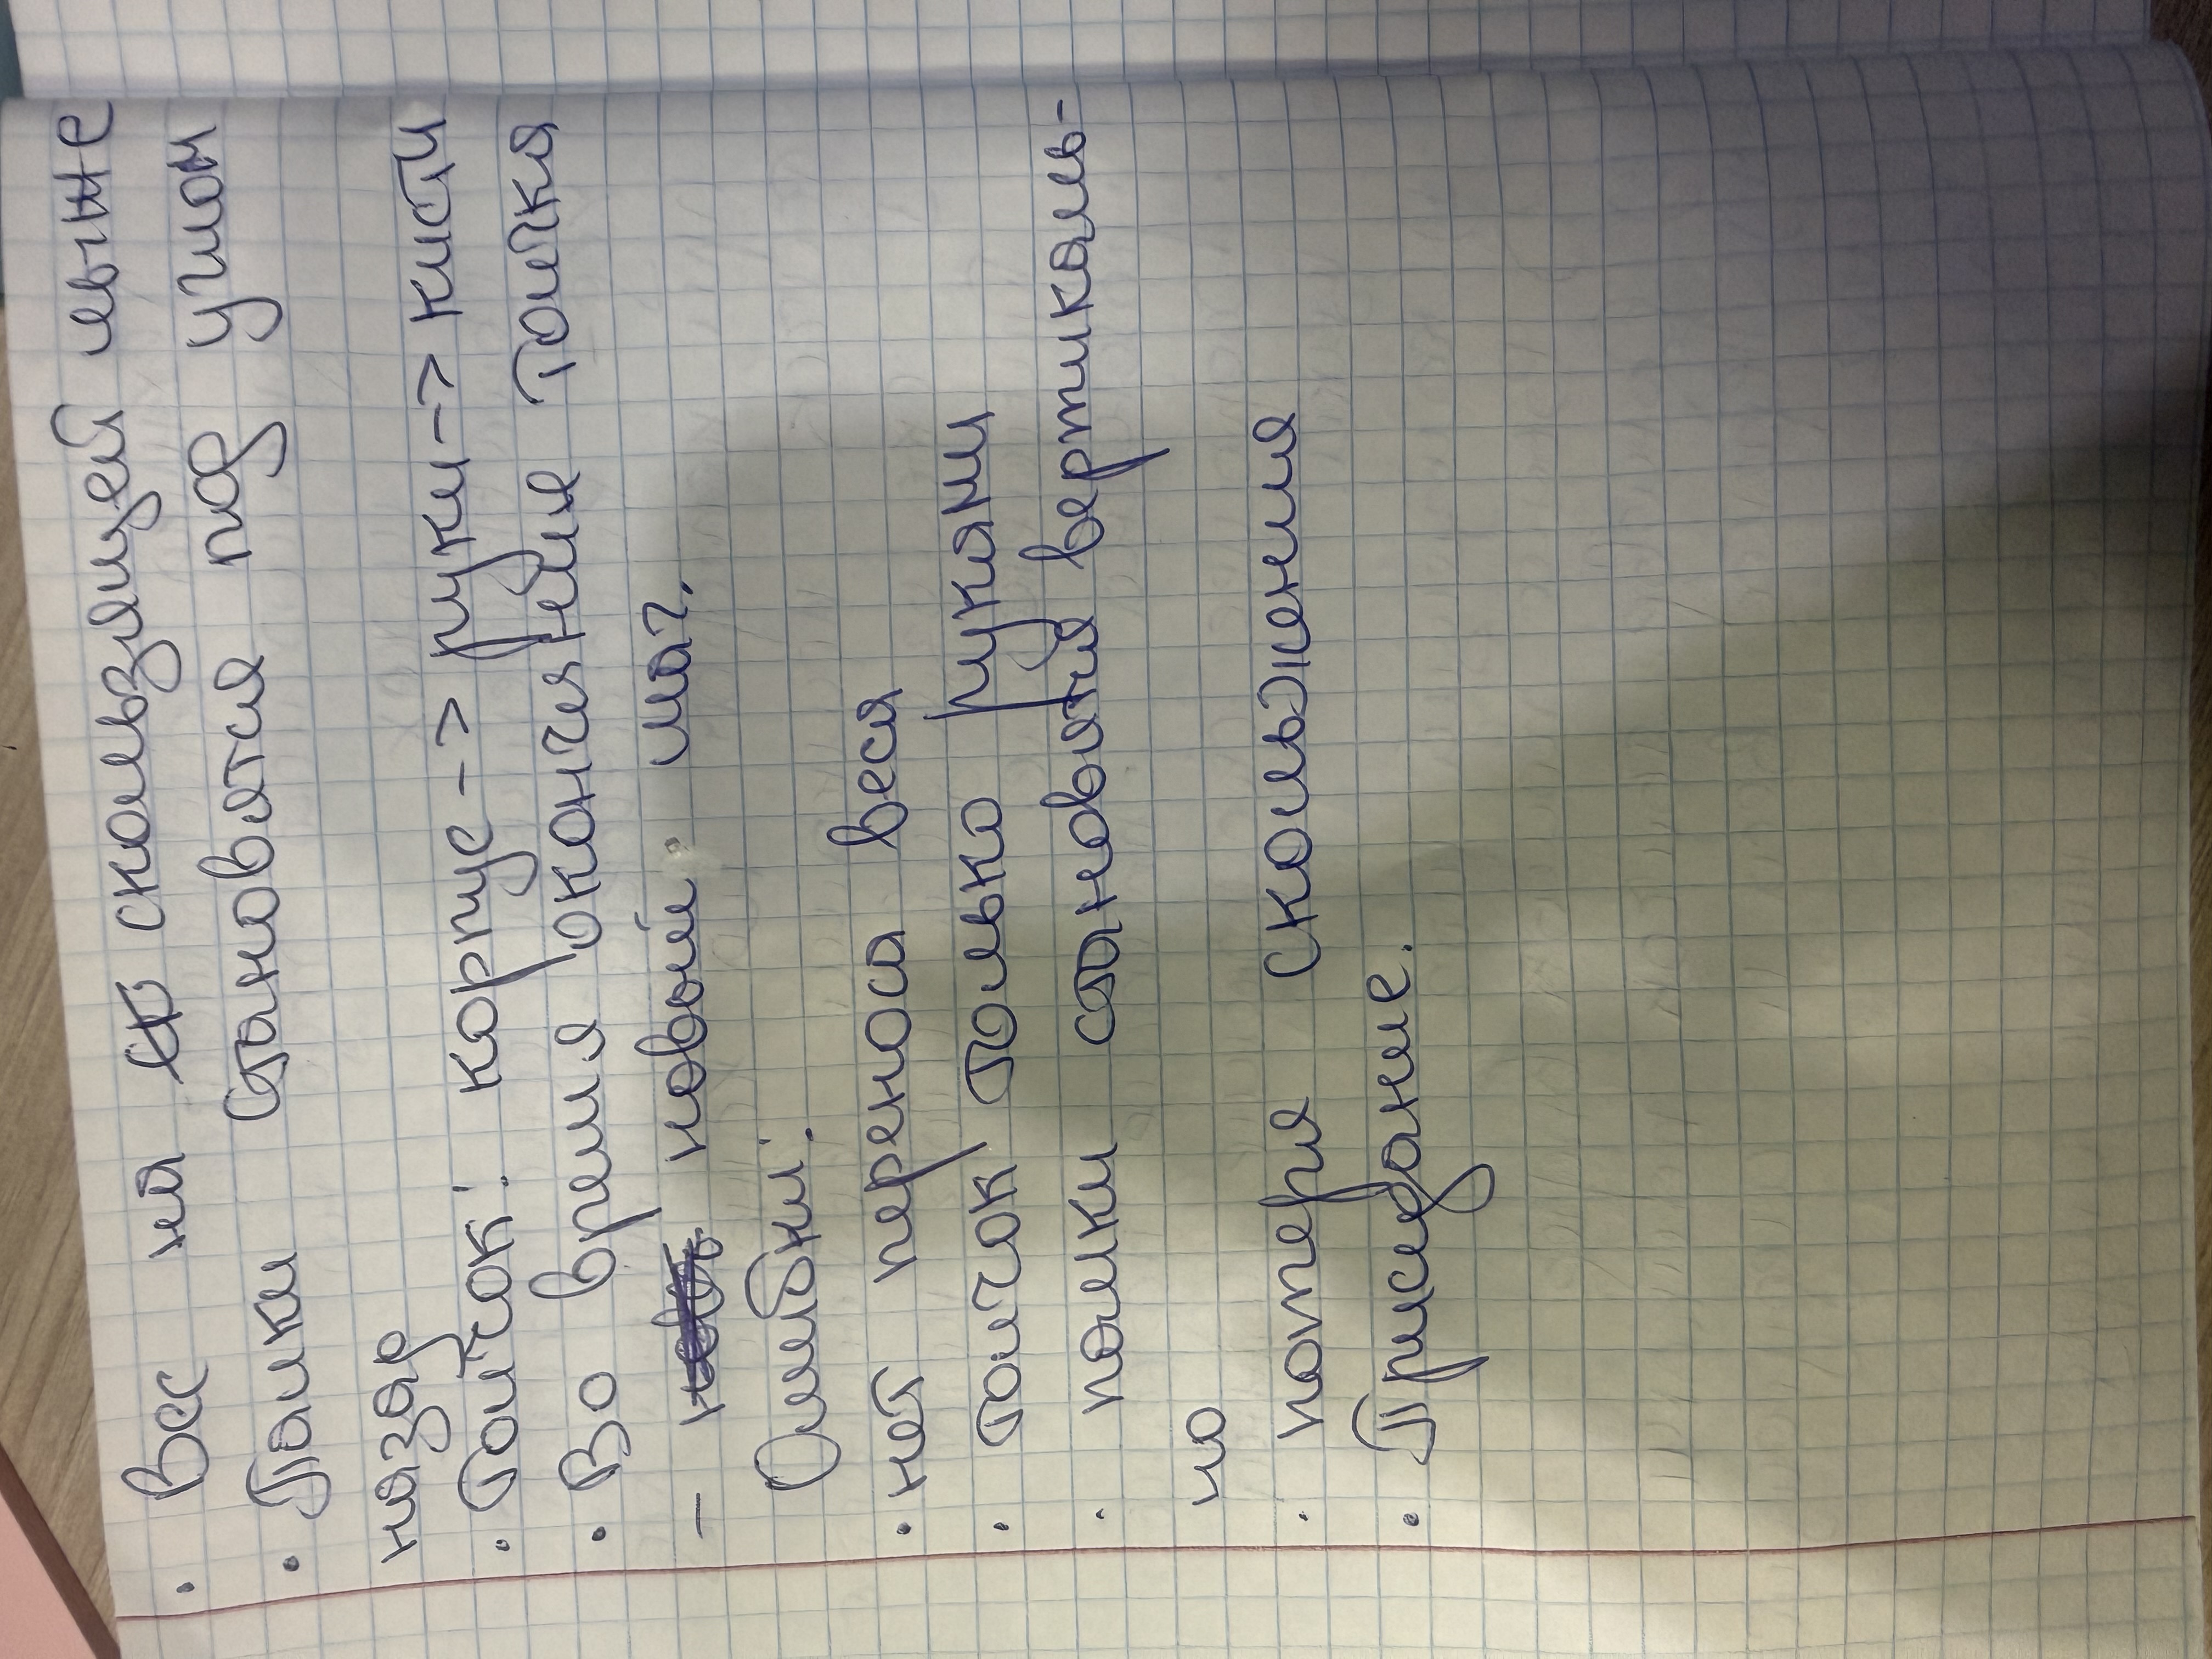 • Вес на скользящей лыже
• Палки становятся под углом
назад
• Толчок: корпус -> руки -> кисти
• Во время окончание толчка
– новый шаг.
Ошибки:
• нет переноса веса
• толчок только руками
• палки становятся вертикаль-
но
• потеря скольжения
• Приседание.